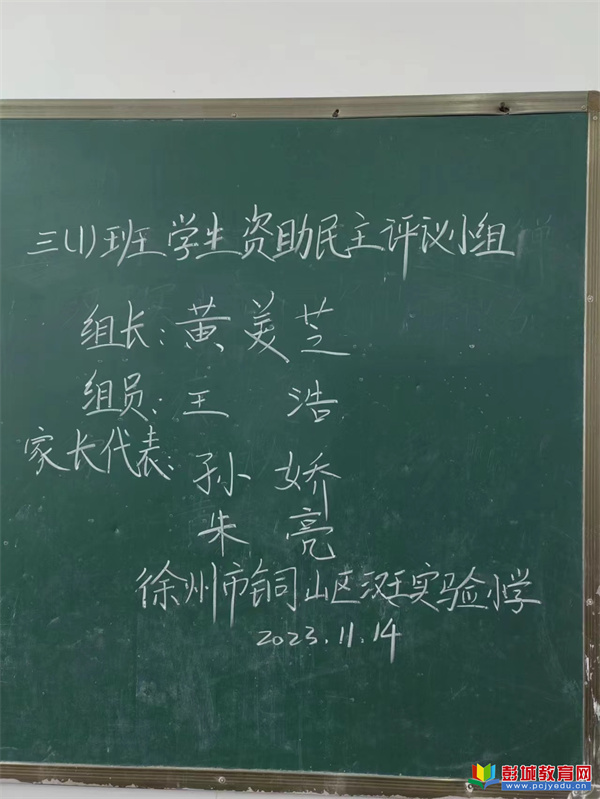 三(1)班学生资助民主评议小组
组长:黄美芝
组员:王 浩
家长代表:孙 娇
朱 亮
徐州市铜山区汉王实验小学
2023.11.14
彭城教育网
www.pcjyedu.cn